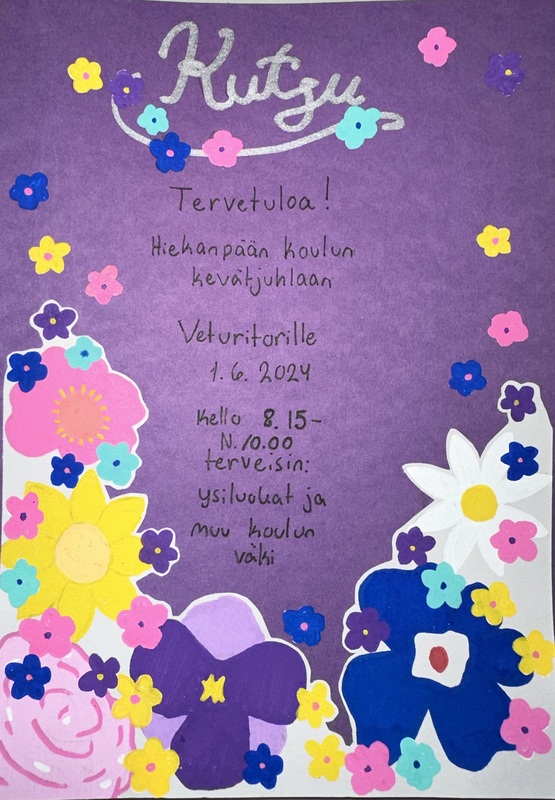 Kutsu
Tervetuloa!
Hiekanpään koulun
kevätjuhlaan
Veturitorille
1.6. 2024
Kello 8.15-
N.10.00
terveisin:
ysiluokat ja
muu koulun
väki